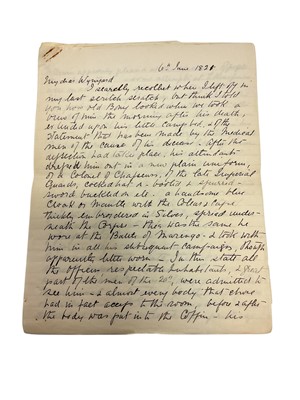 6th June 1821
My dear Wynyard
I scarcely recollect when I left off in
my last scratch, but think I told
you how old Bony looked when we took a
view of him the morning after his death,
as united upon his little Camp bed - the
statement has been made by the medical
men of the cause of his disease - after the
dissection had taken place, his attendants
dressed him out in a plain uniform,
of a Colonel of Chasseurs, of the late Imperial
Guards, cocked hat on booted & spurred -
sword buckled on &c. a handsome blue
Cloak or Mantle with the Collar & Cape
thickly embroidered in Silver, spread under
neath the Corpse - this was the same he
wore at the Battle of Marengo - & took with
him in all his subsequent campaigns, though
apparently little worn - In this state all
the officers, respectable inhabitants, & great
part of the men of the 20th, were admitted to
see him - & almost every body that chose
had in fact access to the room, before & after
the body was put into the Coffin - his